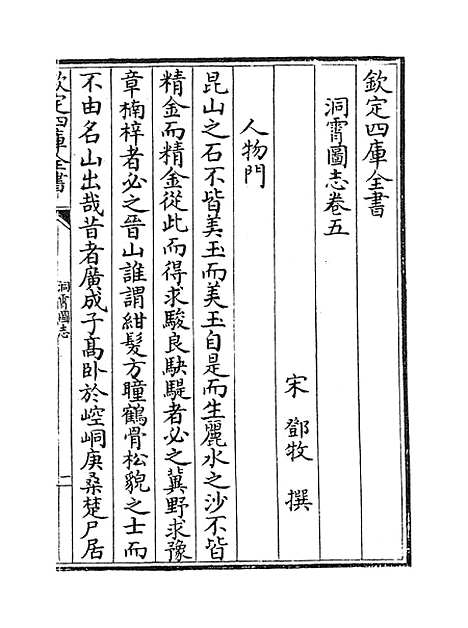 欽定四庫全書
洞霄圖志卷五
宋 鄧牧 撰
人物門
昆山之石不皆美玉而美玉自是而生麗水之沙不皆
精金而精金從此而得求駿良駃騠者必之冀野求豫
章楠梓者必之晉山誰謂紺髮方瞳鶴骨松貌之士而
不由名山出哉昔者廣成子髙卧於崆峒庚桑楚尸居
欽定四庫全書
洞霄圖志
一